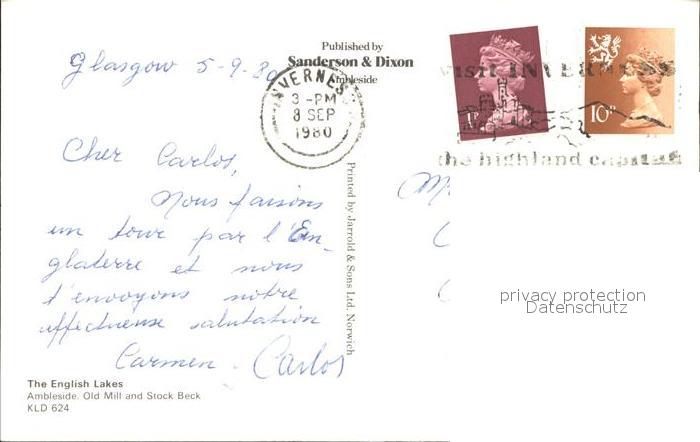 Glasgow 5-9-80
Published by
Sanderson & Dixon
Ambleside
INVERNESS
3-PM
8 SEP
1980
visit INVERNESS
the highland capital
1P
10P
Cher Carlos,
Nous faisons
un tour par l'En-
glaterre et nous
t'envoyons notre
affectueuse salutation
Carmen - Carlos
Printed by Jarrold & Sons Ltd. Norwich
privacy protection
Datenschutz
The English Lakes
Ambleside. Old Mill and Stock Beck
KLD 624